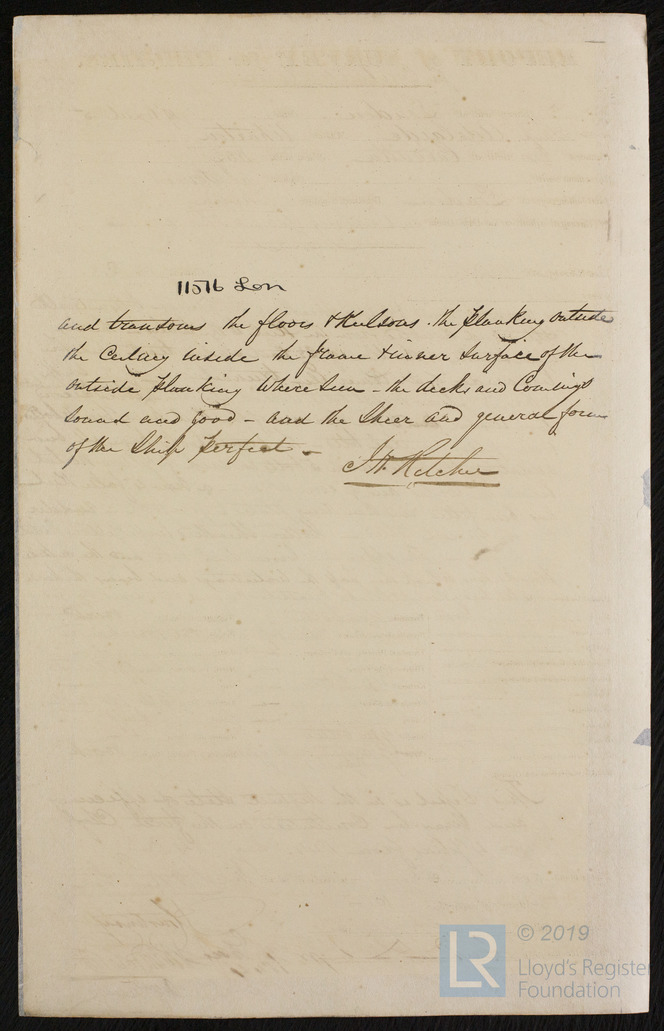 11576 Lon
and transoms the floors & Kelsons. the planking outside
the Ceiling inside the frame & inner surface of the
outside planking where seen - the decks and Comings
sound and good - and the Sheer and general form
of the Ship perfect -
Ketcher
LR
© 2019
Lloyd's Register
Foundation